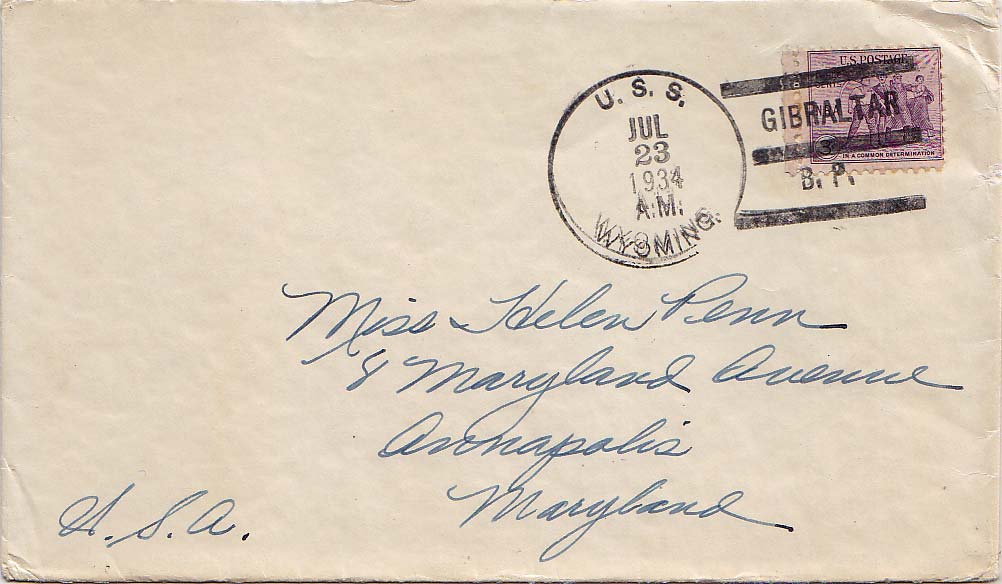 U. S. S.
JUL
23
1934
A.M.
WYOMING.
GIBRALTAR
B. P.
U.S. POSTAGE
3
IN A COMMON DETERMINATION
Miss Helen Penn
8 Maryland Avenue
Annapolis
Maryland
U. S. A.